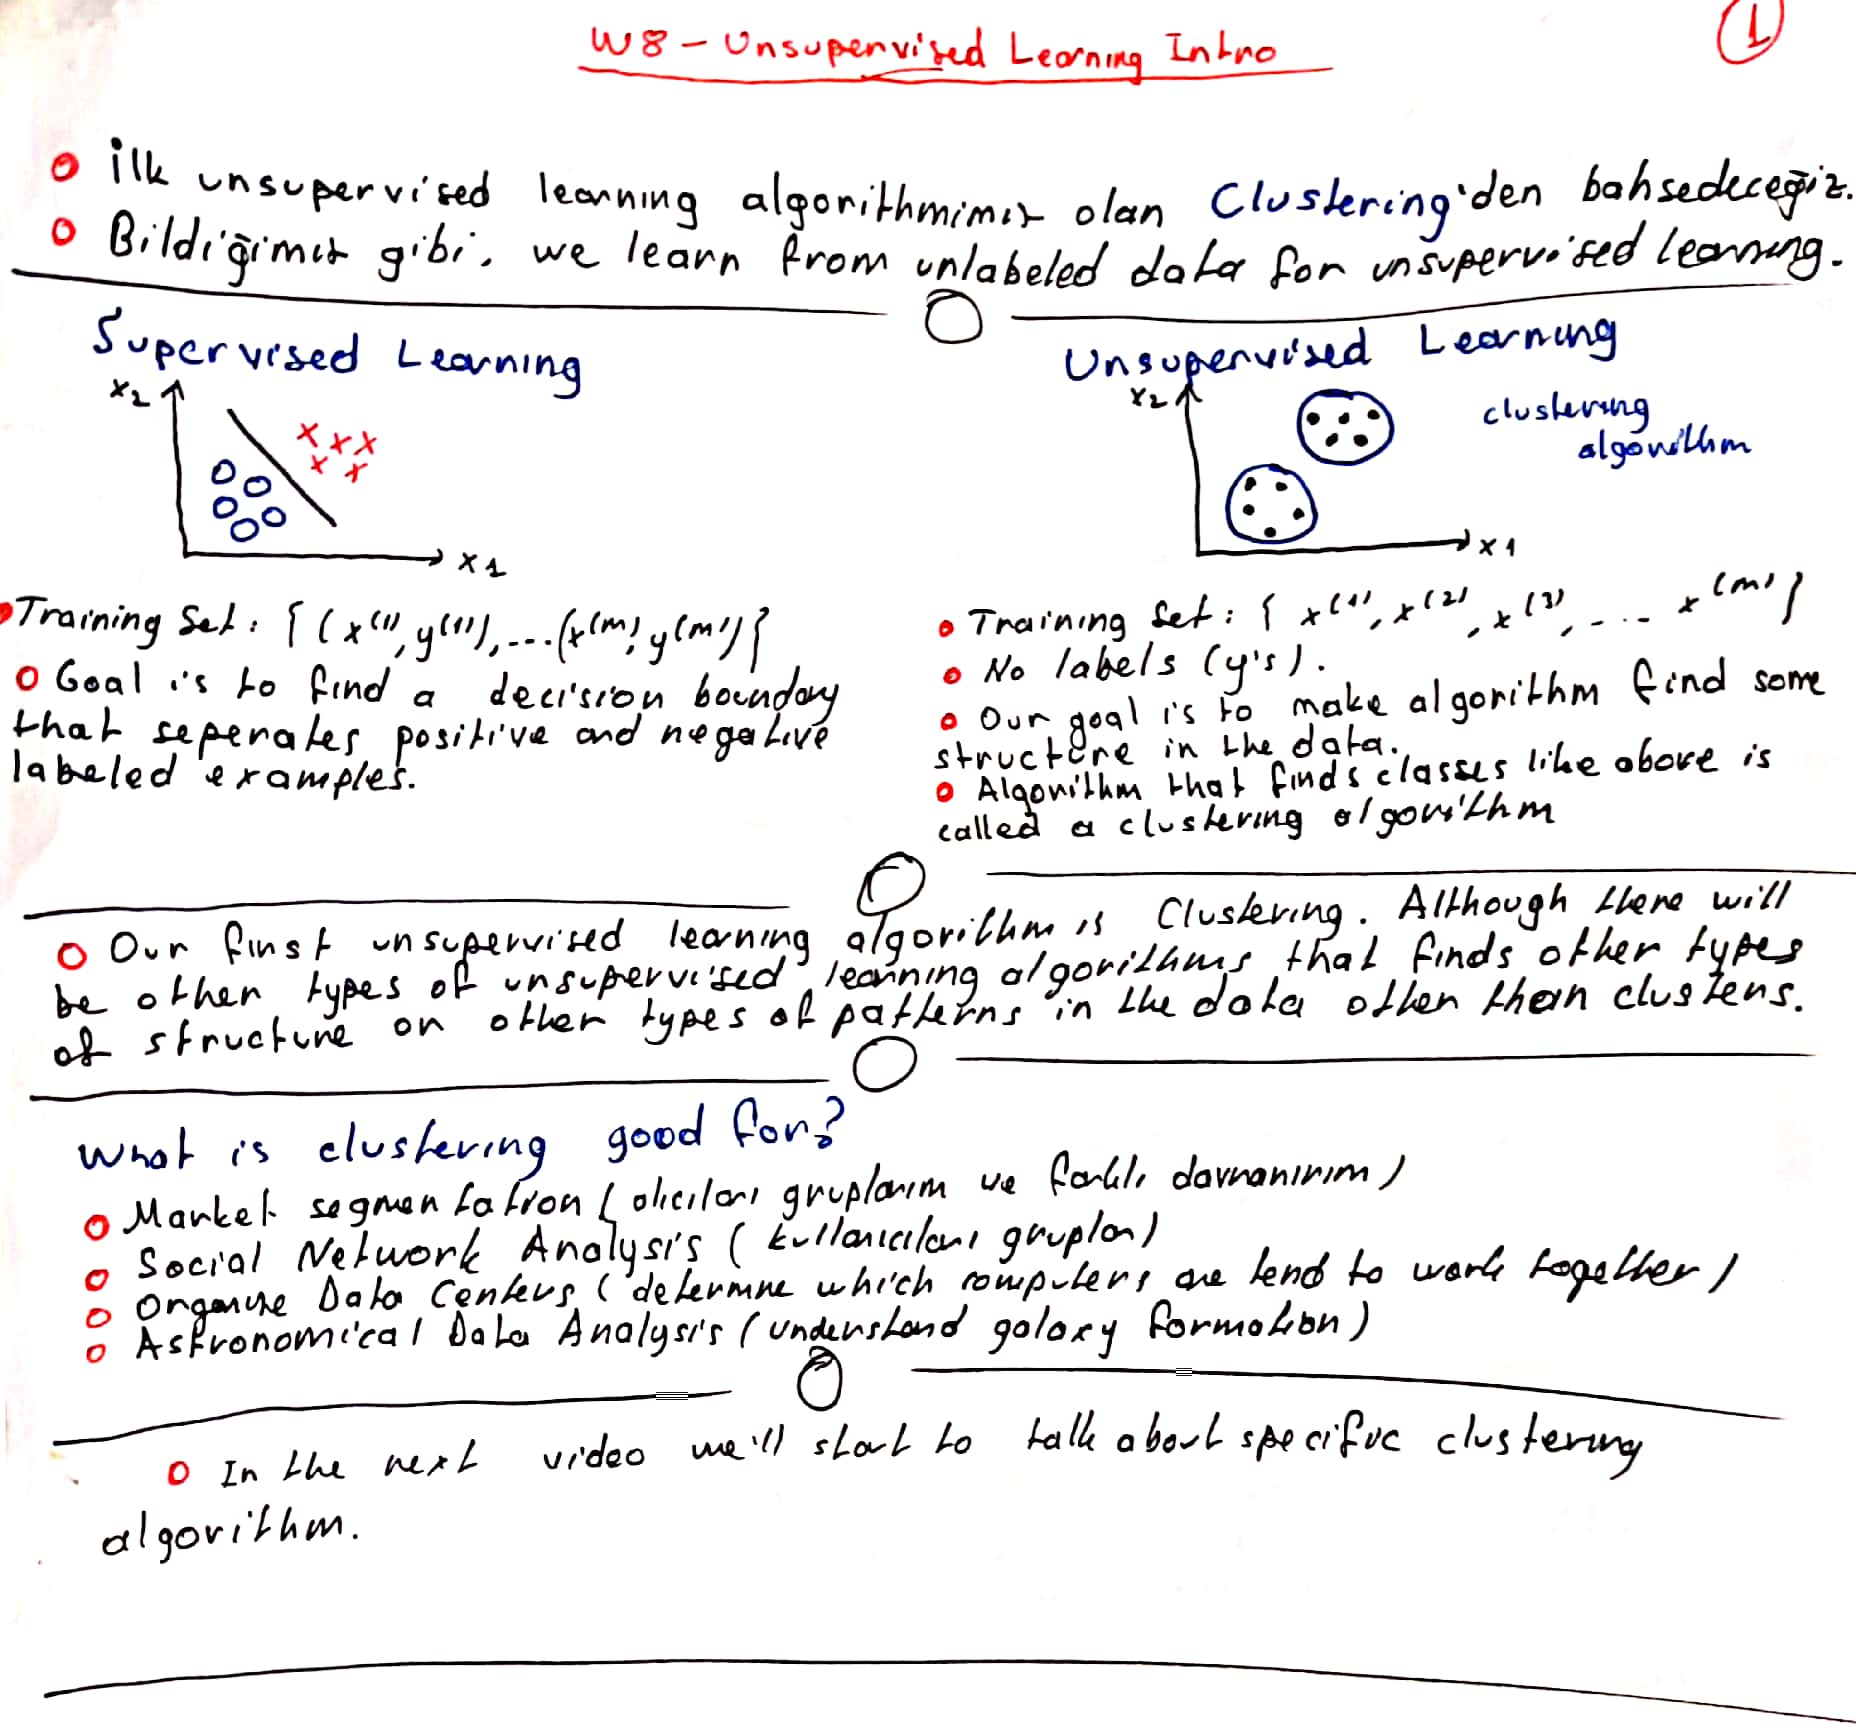 W8 - Unsupervised Learning Intro
1
İlk unsupervised learning algorithmimiz olan Clustering'den bahsedeceğiz.
Bildiğimiz gibi, we learn from unlabeled data for unsupervised learning.
Supervised Learning
x2
x1
Training Set: { (x(1), y(1)), ... (x(m), y(m)) }
Goal is to find a decision boundary
that seperates positive and negative
labeled examples.
Unsupervised Learning
x2
clustering
algorithm
x1
Training Set: { x(1), x(2), x(3), ... x(m) }
No labels (y's).
Our goal is to make algorithm find some
structere in the data.
Algorithm that finds classes like above is
called a clustering algorithm
Our first unsupervised learning algorithm is Clustering. Although there will
be other types of unsupervised learning algorithms that finds other types
of structure or other types of patterns in the data other than clusters.
What is clustering good for?
Market segmentation (alıcıları gruplarım ve farklı davranırım)
Social Network Analysis (kullanıcıları grupla)
Organize Data Centers (determine which computers are tend to work together)
Astronomical Data Analysis (understand galaxy formation)
In the next video we'll start to talk about specific clustering
algorithm.